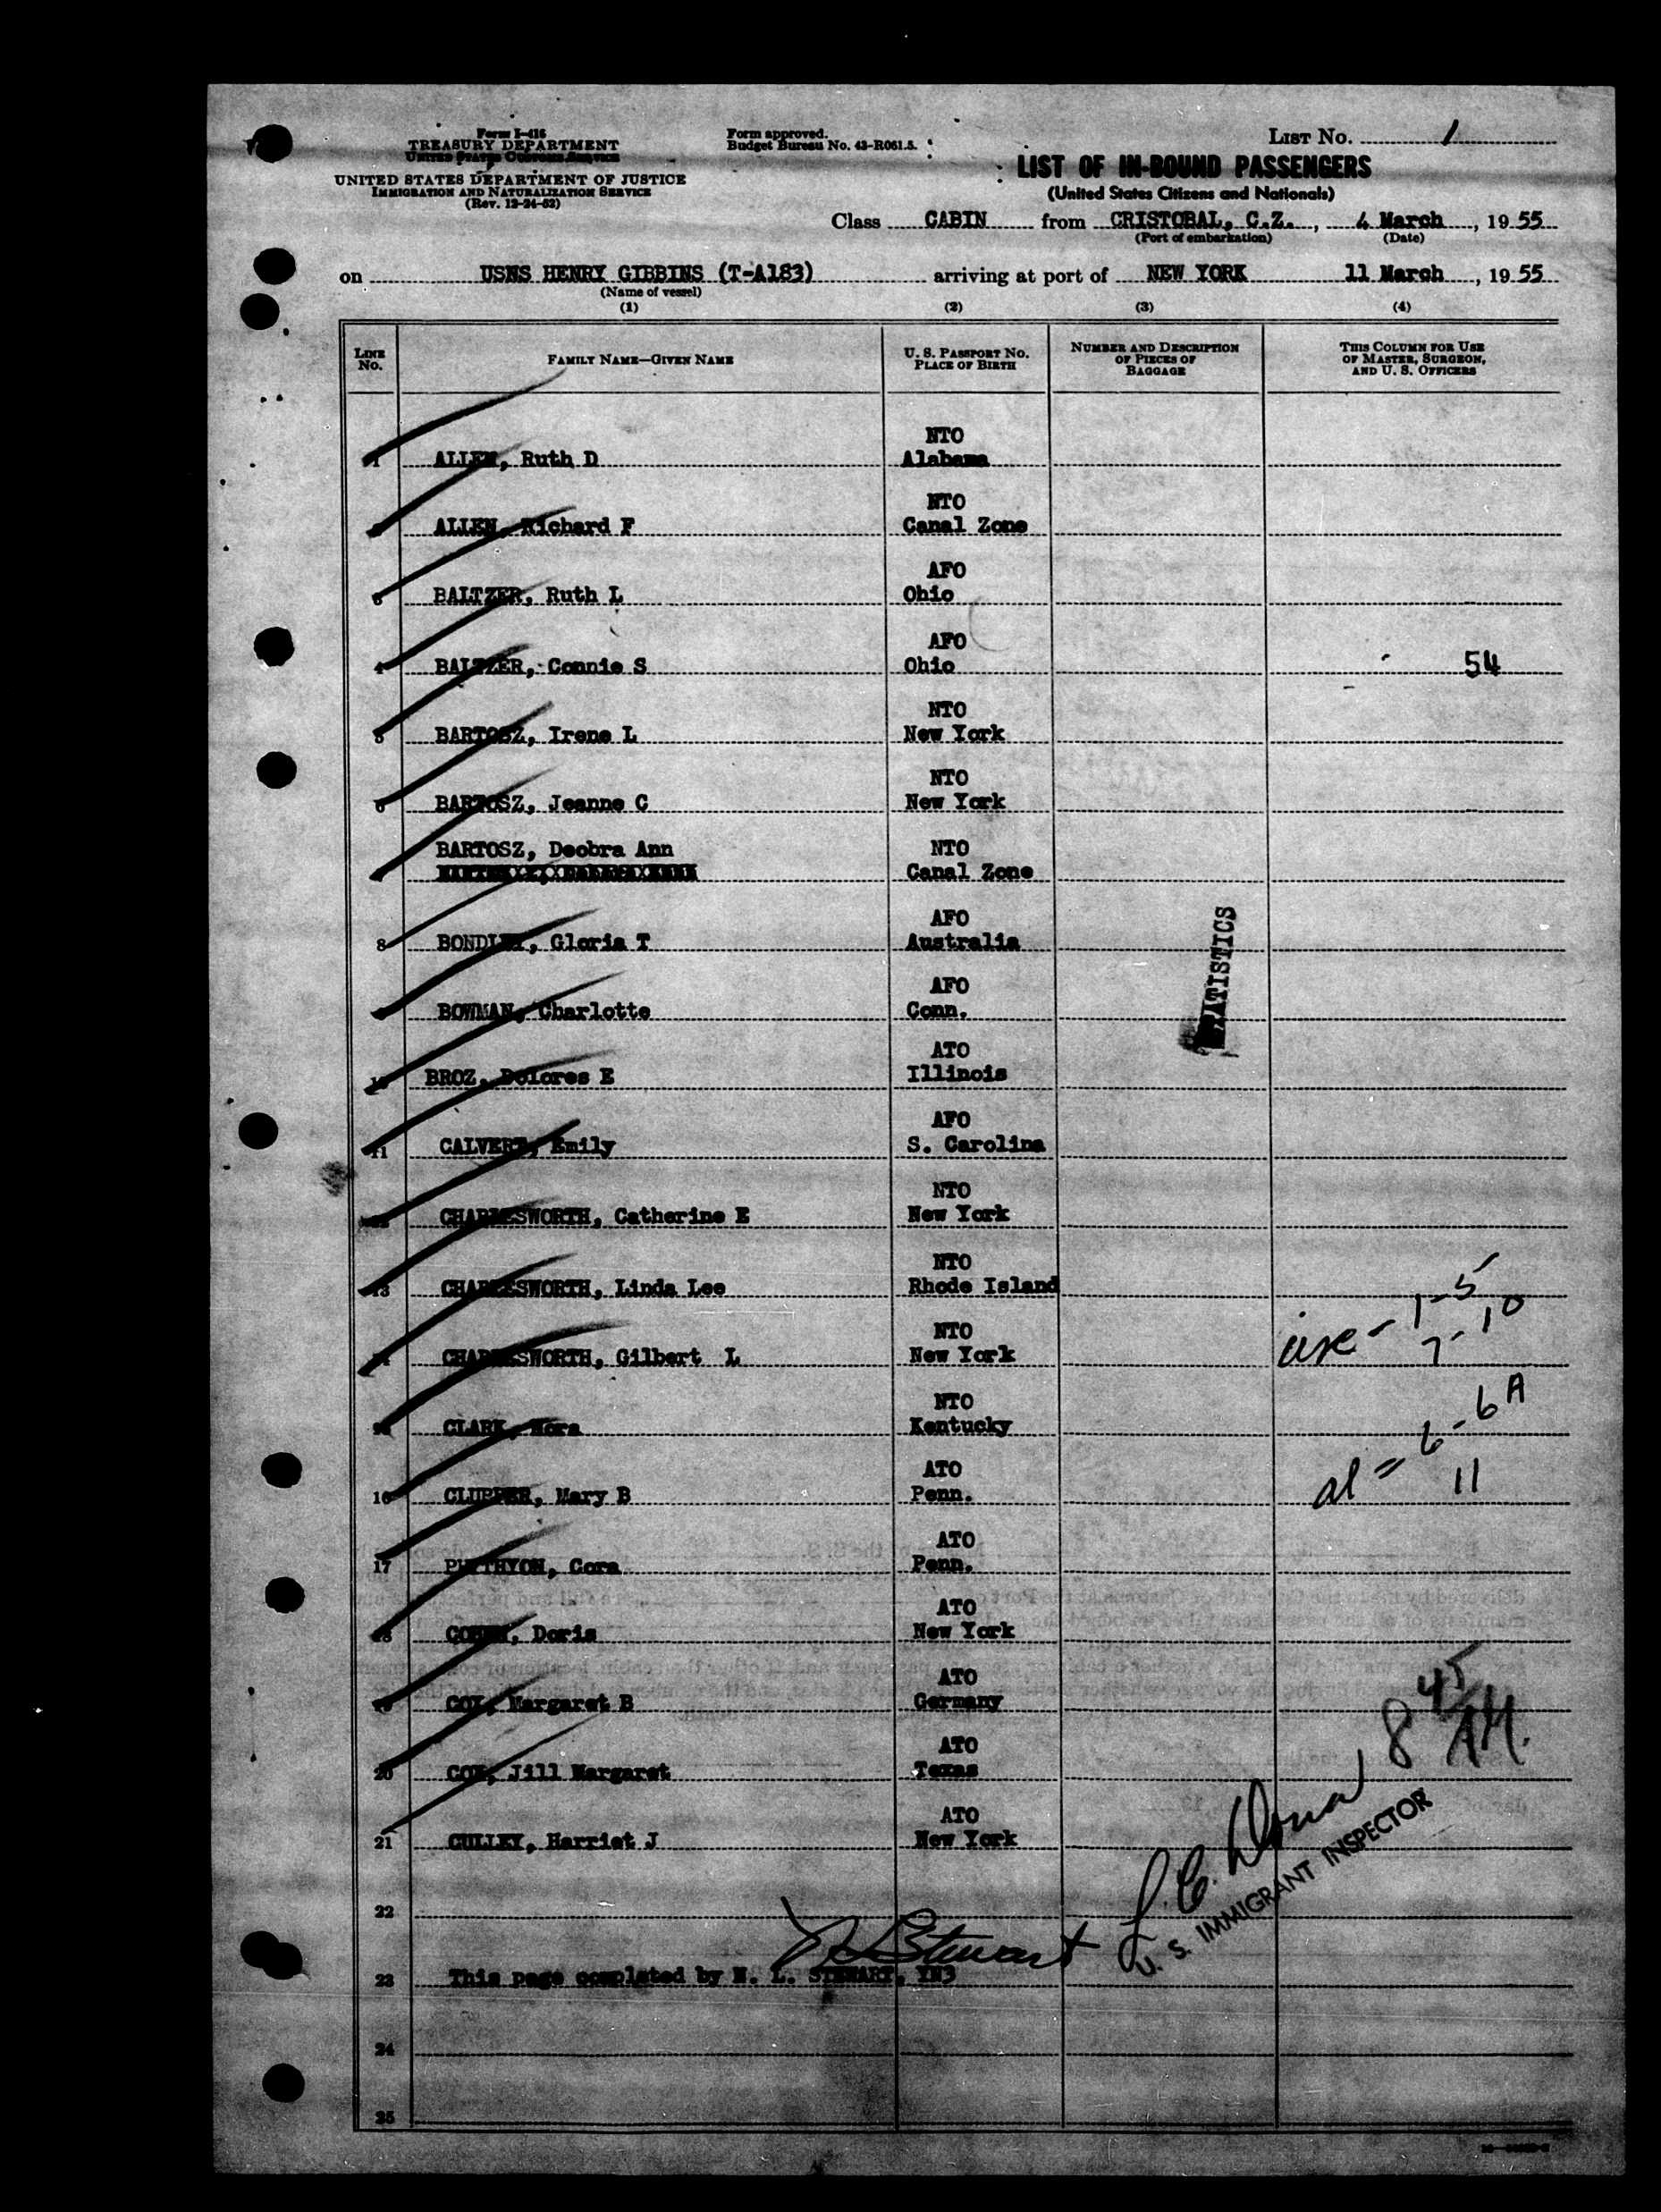 Form I-416
TREASURY DEPARTMENT
UNITED STATES CUSTOMS SERVICE
UNITED STATES DEPARTMENT OF JUSTICE
IMMIGRATION AND NATURALIZATION SERVICE
(Rev. 12-24-52)
Form approved.
Budget Bureau No. 43-R061.5.
LIST NO. 1
LIST OF IN-BOUND PASSENGERS
(United States Citizens and Nationals)
Class CABIN from CRISTOBAL, C.Z., 4 March, 1955
(Port of embarkation) (Date)
on USNS HENRY GIBBINS (T-A183) arriving at port of NEW YORK 11 March, 1955
(Name of vessel)
(1) (2) (3) (4)
LINE NO.
FAMILY NAME—GIVEN NAME
U. S. PASSPORT NO.
PLACE OF BIRTH
NUMBER AND DESCRIPTION
OF PIECES OF
BAGGAGE
THIS COLUMN FOR USE
OF MASTER, SURGEON,
AND U. S. OFFICERS
NTO
1 ALLEN, Ruth D Alabama
NTO
ALLEN, Richard F Canal Zone
AFO
3 BALTZER, Ruth L Ohio
AFO
4 BALTZER, Connie S Ohio 54
NTO
5 BARTOSZ, Irene L New York
NTO
6 BARTOSZ, Jeanne C New York
BARTOSZ, Deobra Ann NTO
Canal Zone
AFO
8 Gloria T Australia
AFO
BOWMAN, Charlotte Conn.
ATO
10 BROZ, Dolores E Illinois
AFO
11 CALVERT, Emily S. Carolina
NTO
12 CHARLESWORTH, Catherine E New York
NTO
13 CHARLESWORTH, Linda Lee Rhode Island
NTO
14 CHARLESWORTH, Gilbert L New York
NTO
15 CLARK, Nora Kentucky
ATO
16 CLUPPER, Mary B Penn.
ATO
17 Cora Penn.
ATO
18 Doris New York
ATO
19 COX, Margaret B Germany
ATO
20 COX, Jill Margaret Texas
ATO
21 CULLEY, Harriet J New York
22
23 This page completed by N. L. STEWART, YN3
24
25
1-5
7-10
6-6A
11
8 45 AM.
N L Stewart
L. C.
U. S. IMMIGRANT INSPECTOR